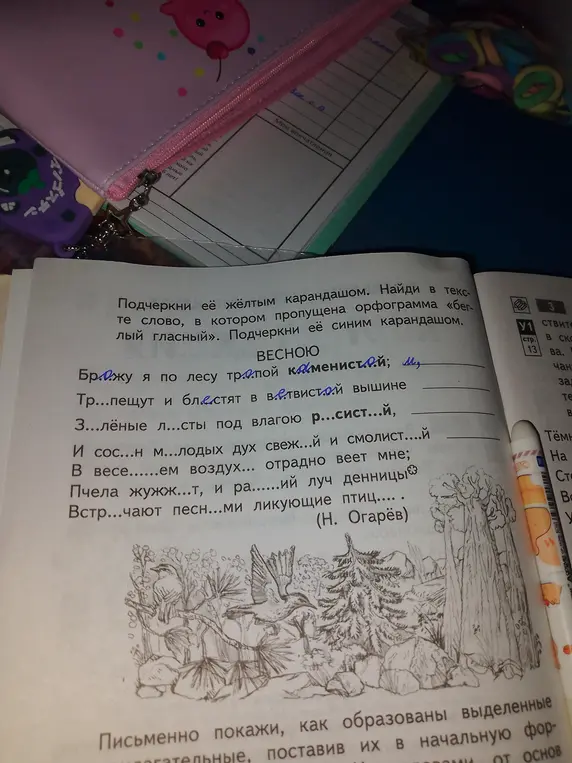 Подчеркни её жёлтым карандашом. Найди в текс-
те слово, в котором пропущена орфограмма «бег-
лый гласный». Подчеркни её синим карандашом.
ВЕСНОЮ
Брожу я по лесу тропой каменистой;
Тр...пещут и блестят в ветвистой вышине
З...лёные л...сты под влагою р...сист...й,
И сос...н м...лодых дух свеж...й и смолист...й
В весе......ем воздух... отрадно веет мне;
Пчела жужж...т, и ра......ий луч денницы
Встр...чают песн...ми ликующие птиц.... .
(Н. Огарёв)
Письменно покажи, как образованы выделенные
поставив их в начальную фор-
от основ
3
У1
стр.
13
ствит
в ско
ва.
Тёмн
На